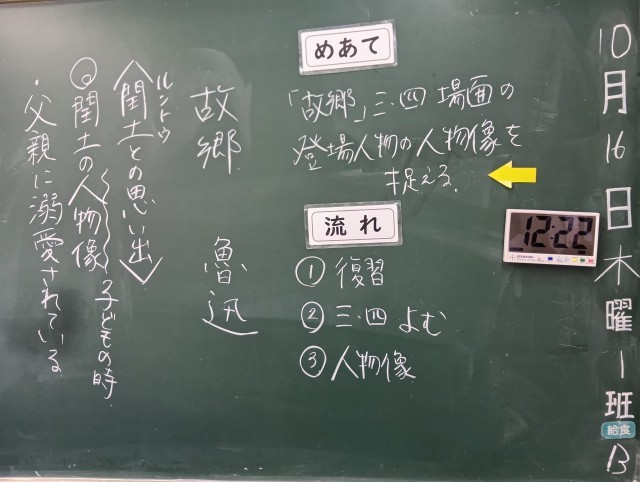 10月16日木曜1班
給食
B
12:22
めあて
「故郷」三・四場面の
登場人物の人物像を
捉える。
流れ
①復習
②三・四よむ
③人物像
故郷 魯迅
ルントウ
〈閏土との思い出〉
◎閏土の人物像 子どもの時
・父親に溺愛されている